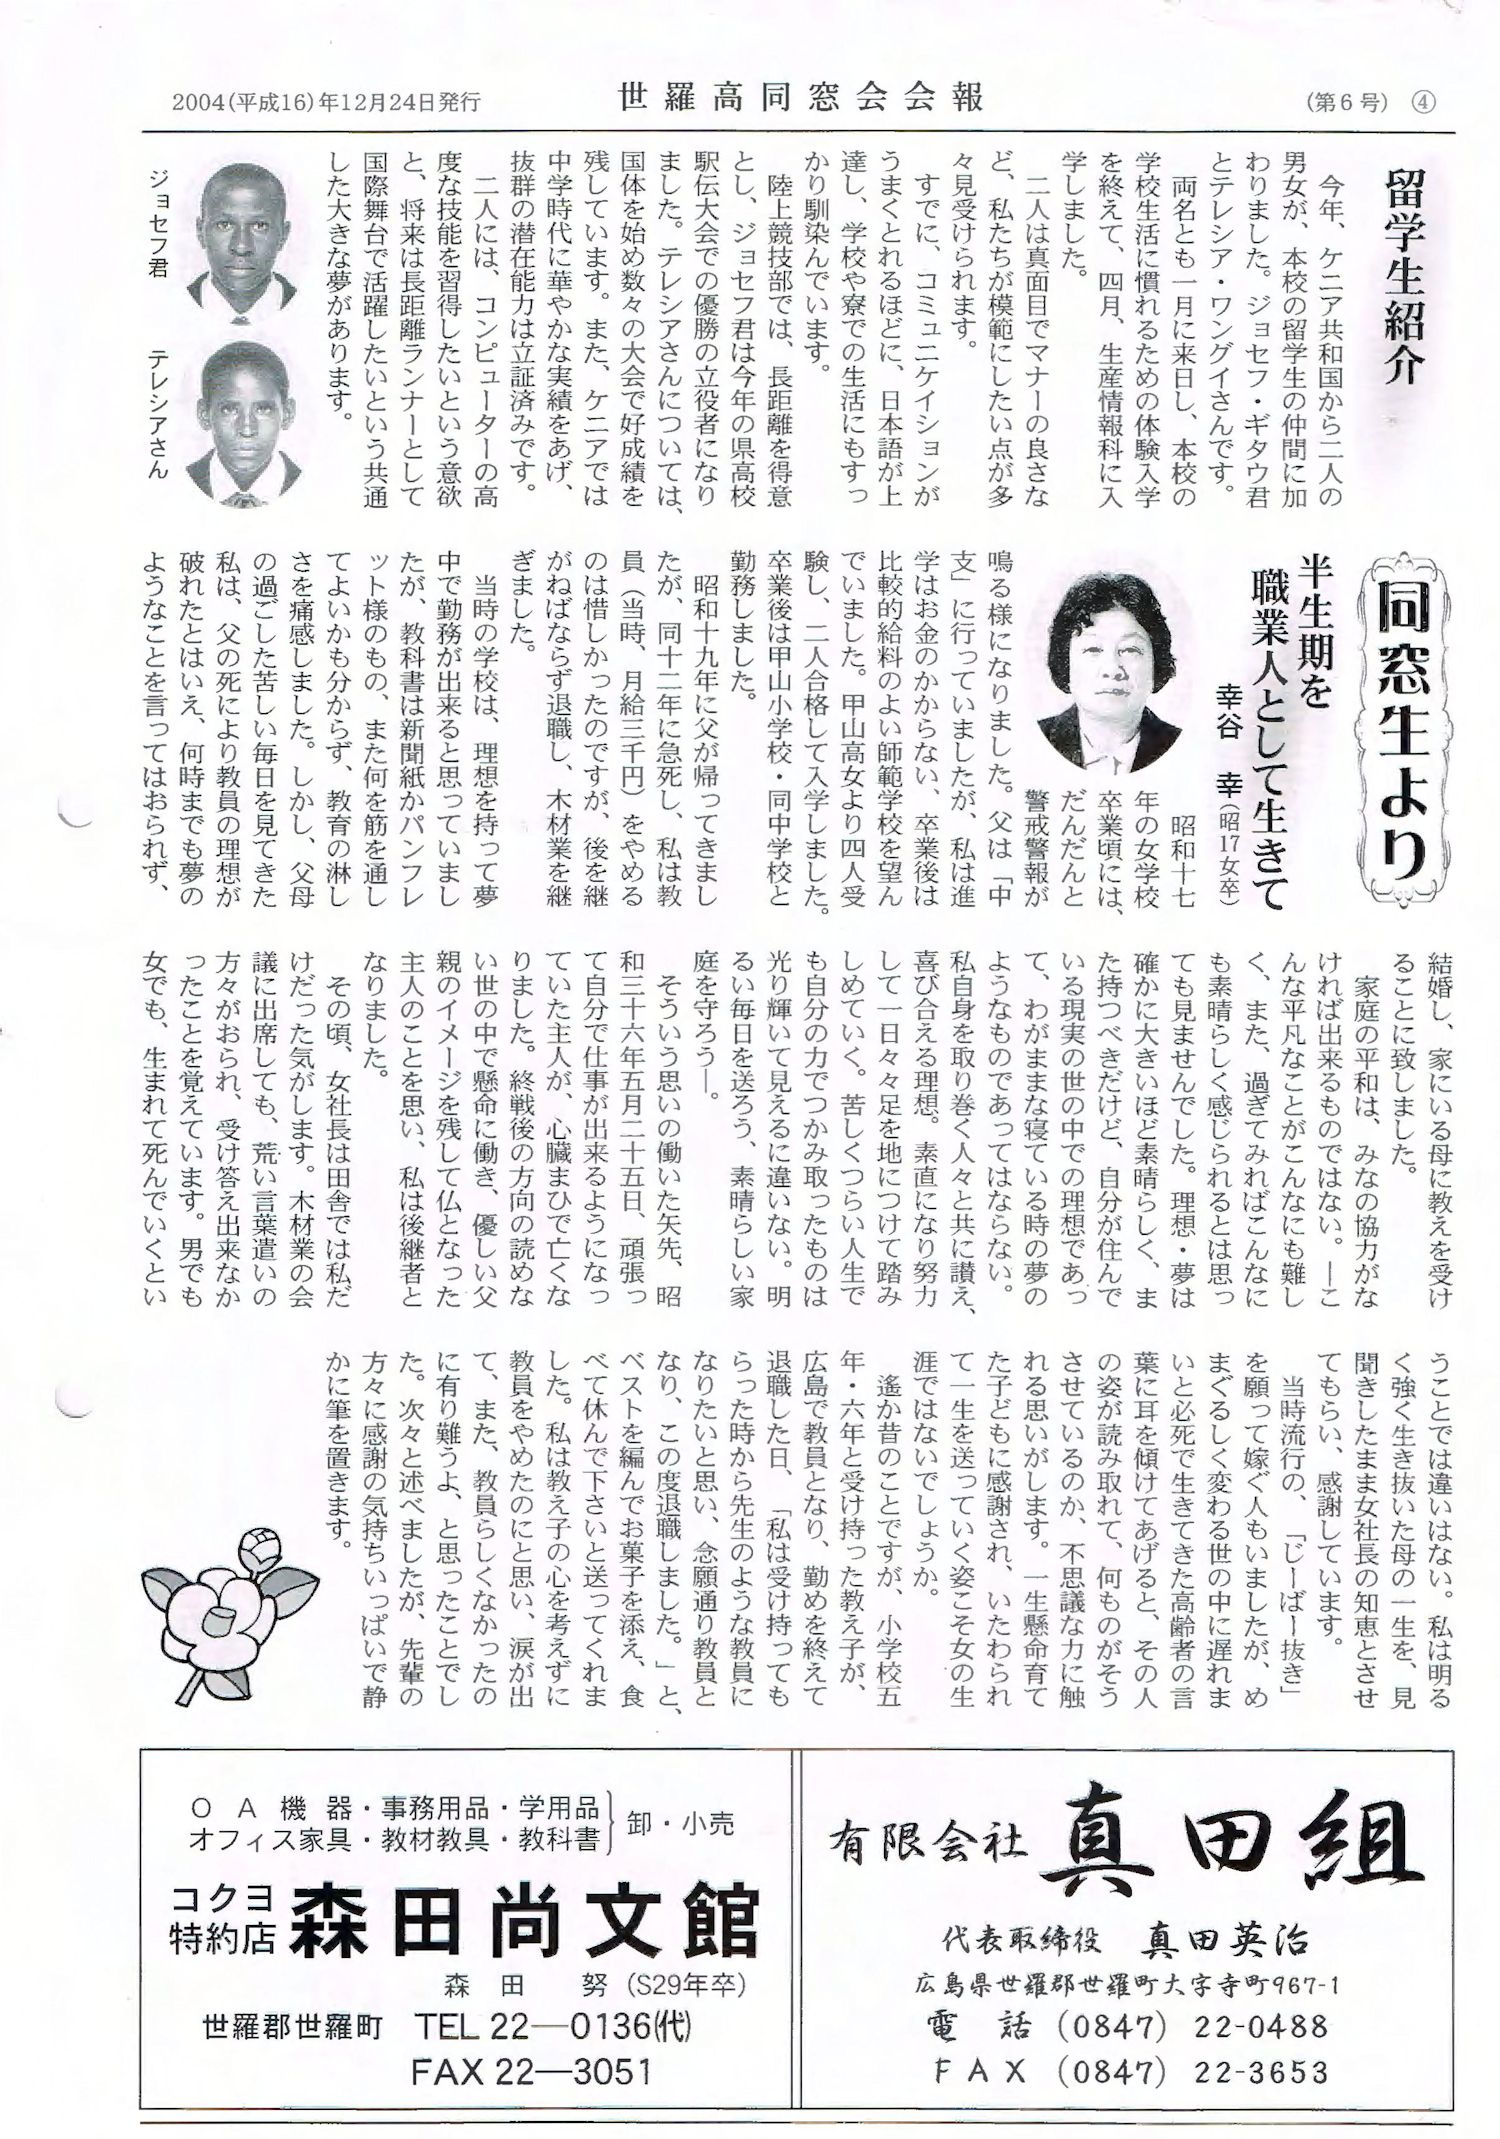 2004(平成16)年12月24日発行
世羅高同窓会会報
(第6号) ④
留学生紹介
今年、ケニア共和国から二人の
男女が、本校の留学生の仲間に加
わりました。ジョセフ・ギタウ君
とテレシア・ワングイさんです。
両名とも一月に来日し、本校の
学校生活に慣れるための体験入学
を終えて、四月、生産情報科に入
学しました。
二人は真面目でマナーの良さな
ど、私たちが模範にしたい点が多
々見受けられます。
すでに、コミュニケイションが
うまくとれるほどに、日本語が上
達し、学校や寮での生活にもすっ
かり馴染んでいます。
陸上競技部では、長距離を得意
とし、ジョセフ君は今年の県高校
駅伝大会での優勝の立役者になり
ました。テレシアさんについては、
国体を始め数々の大会で好成績を
残しています。また、ケニアでは
中学時代に華やかな実績をあげ、
抜群の潜在能力は立証済みです。
二人には、コンピューターの高
度な技能を習得したいという意欲
と、将来は長距離ランナーとして
国際舞台で活躍したいという共通
した大きな夢があります。
ジョセフ君
テレシアさん
同窓生より
半生期を
職業人として生きて
幸谷 幸(昭17女卒)
昭和十七
年の女学校
卒業頃には、
だんだんと
警戒警報が
鳴る様になりました。父は「中
支」に行っていましたが、私は進
学はお金のかからない、卒業後は
比較的給料のよい師範学校を望ん
でいました。甲山高女より四人受
験し、二人合格して入学しました。
卒業後は甲山小学校・同中学校と
勤務しました。
昭和十九年に父が帰ってきまし
たが、同十二年に急死し、私は教
員（当時、月給三千円）をやめる
のは惜しかったのですが、後を継
がねばならず退職し、木材業を継
ぎました。
当時の学校は、理想を持って夢
中で勤務が出来ると思っていまし
たが、教科書は新聞紙かパンフレ
ット様のもの、また何を筋を通し
てよいかも分からず、教育の淋し
さを痛感しました。しかし、父母
の過ごした苦しい毎日を見てきた
私は、父の死により教員の理想が
破れたとはいえ、何時までも夢の
ようなことを言ってはおられず、
結婚し、家にいる母に教えを受け
ることに致しました。
家庭の平和は、みなの協力がな
ければ出来るものではない。―こ
んな平凡なことがこんなにも難し
く、また、過ぎてみればこんなに
も素晴らしく感じられるとは思っ
ても見ませんでした。理想・夢は
確かに大きいほど素晴らしく、ま
た持つべきだけど、自分が住んで
いる現実の世の中での理想であっ
て、わがままな寝ている時の夢の
ようなものであってはならない。
私自身を取り巻く人々と共に讃え、
喜び合える理想。素直になり努力
して一日々々足を地につけて踏み
しめていく。苦しくつらい人生で
も自分の力でつかみ取ったものは
光り輝いて見えるに違いない。明
るい毎日を送ろう、素晴らしい家
庭を守ろう―。
そういう思いの働いた矢先、昭
和三十六年五月二十五日、頑張っ
て自分で仕事が出来るようになっ
ていた主人が、心臓まひで亡くな
りました。終戦後の方向の読めな
い世の中で懸命に働き、優しい父
親のイメージを残して仏となった
主人のことを思い、私は後継者と
なりました。
その頃、女社長は田舎では私だ
けだった気がします。木材業の会
議に出席しても、荒い言葉遣いの
方々がおられ、受け答え出来なか
ったことを覚えています。男でも
女でも、生まれて死んでいくとい
うことでは違いはない。私は明る
く強く生き抜いた母の一生を、見
聞きしたまま女社長の知恵とさせ
てもらい、感謝しています。
当時流行の、「じーばー抜き」
を願って嫁ぐ人もいましたが、め
まぐるしく変わる世の中に遅れま
いと必死で生きてきた高齢者の言
葉に耳を傾けてあげると、その人
の姿が読み取れて、何ものがそう
させているのか、不思議な力に触
れる思いがします。一生懸命育て
た子どもに感謝され、いたわられ
て一生を送っていく姿こそ女の生
涯ではないでしょうか。
遙か昔のことですが、小学校五
年・六年と受け持った教え子が、
広島で教員となり、勤めを終えて
退職した日、「私は受け持っても
らった時から先生のような教員に
なりたいと思い、念願通り教員と
なり、この度退職しました。」と、
ベストを編んでお菓子を添え、食
べて休んで下さいと送ってくれま
した。私は教え子の心を考えずに
教員をやめたのにと思い、涙が出
て、また、教員らしくなかったの
に有り難うよ、と思ったことでし
た。次々と述べましたが、先輩の
方々に感謝の気持ちいっぱいで静
かに筆を置きます。
ＯＡ機器・事務用品・学用品
オフィス家具・教材教具・教科書
卸・小売
コクヨ
特約店
森田尚文館
森田 努(S29年卒)
世羅郡世羅町 TEL 22―0136㈹
FAX 22―3051
有限会社 真田組
代表取締役 真田英治
広島県世羅郡世羅町大字寺町967-1
電話 (0847) 22-0488
FAX (0847) 22-3653